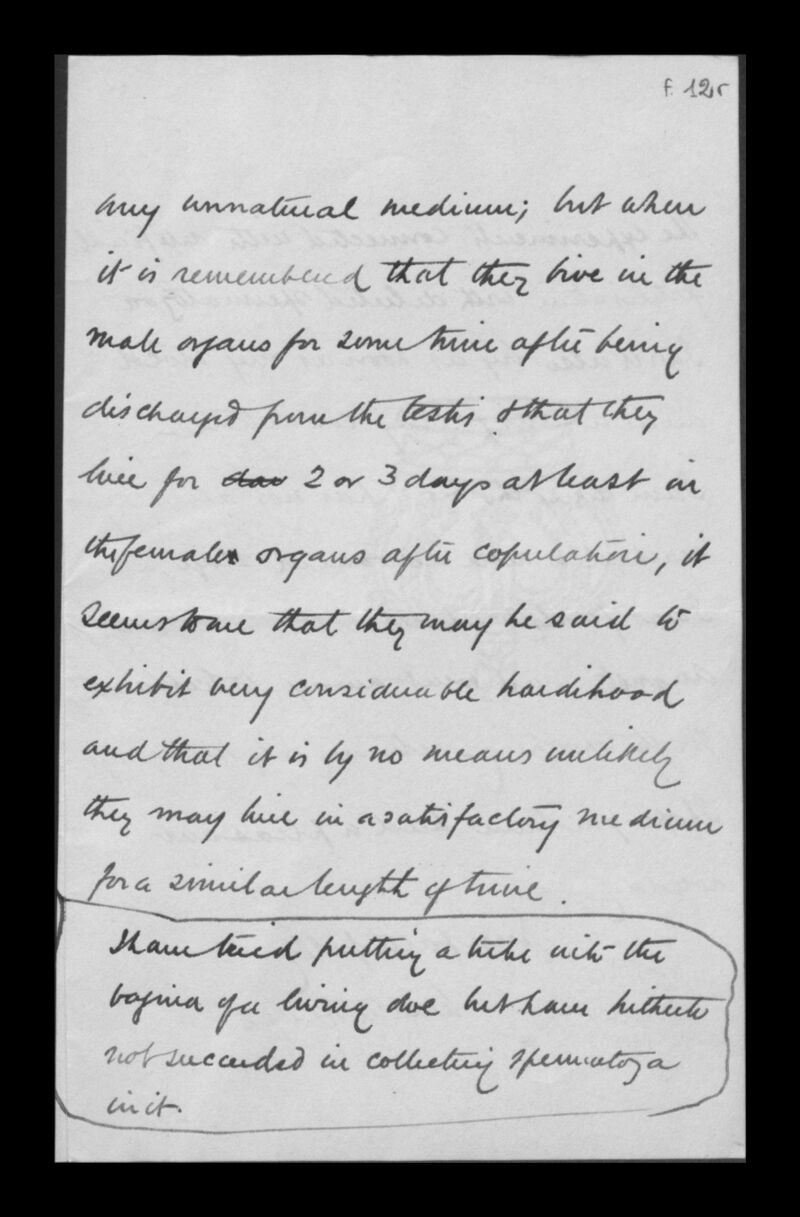 f. 12r
any unnatural medium; but when
it is remembered that they live in the
male organs for some time after being
discharged from the testis & that they
live for 2 or 3 days at least in
the female organs after copulation, it
seems to me that they may be said to
exhibit very considerable hardihood
and that it is by no means unlikely
they may live in a satisfactory medium
for a similar length of time.
I have tried putting a tube into the
vagina of a living doe but have hitherto
not succeeded in collecting spermatozoa
in it.